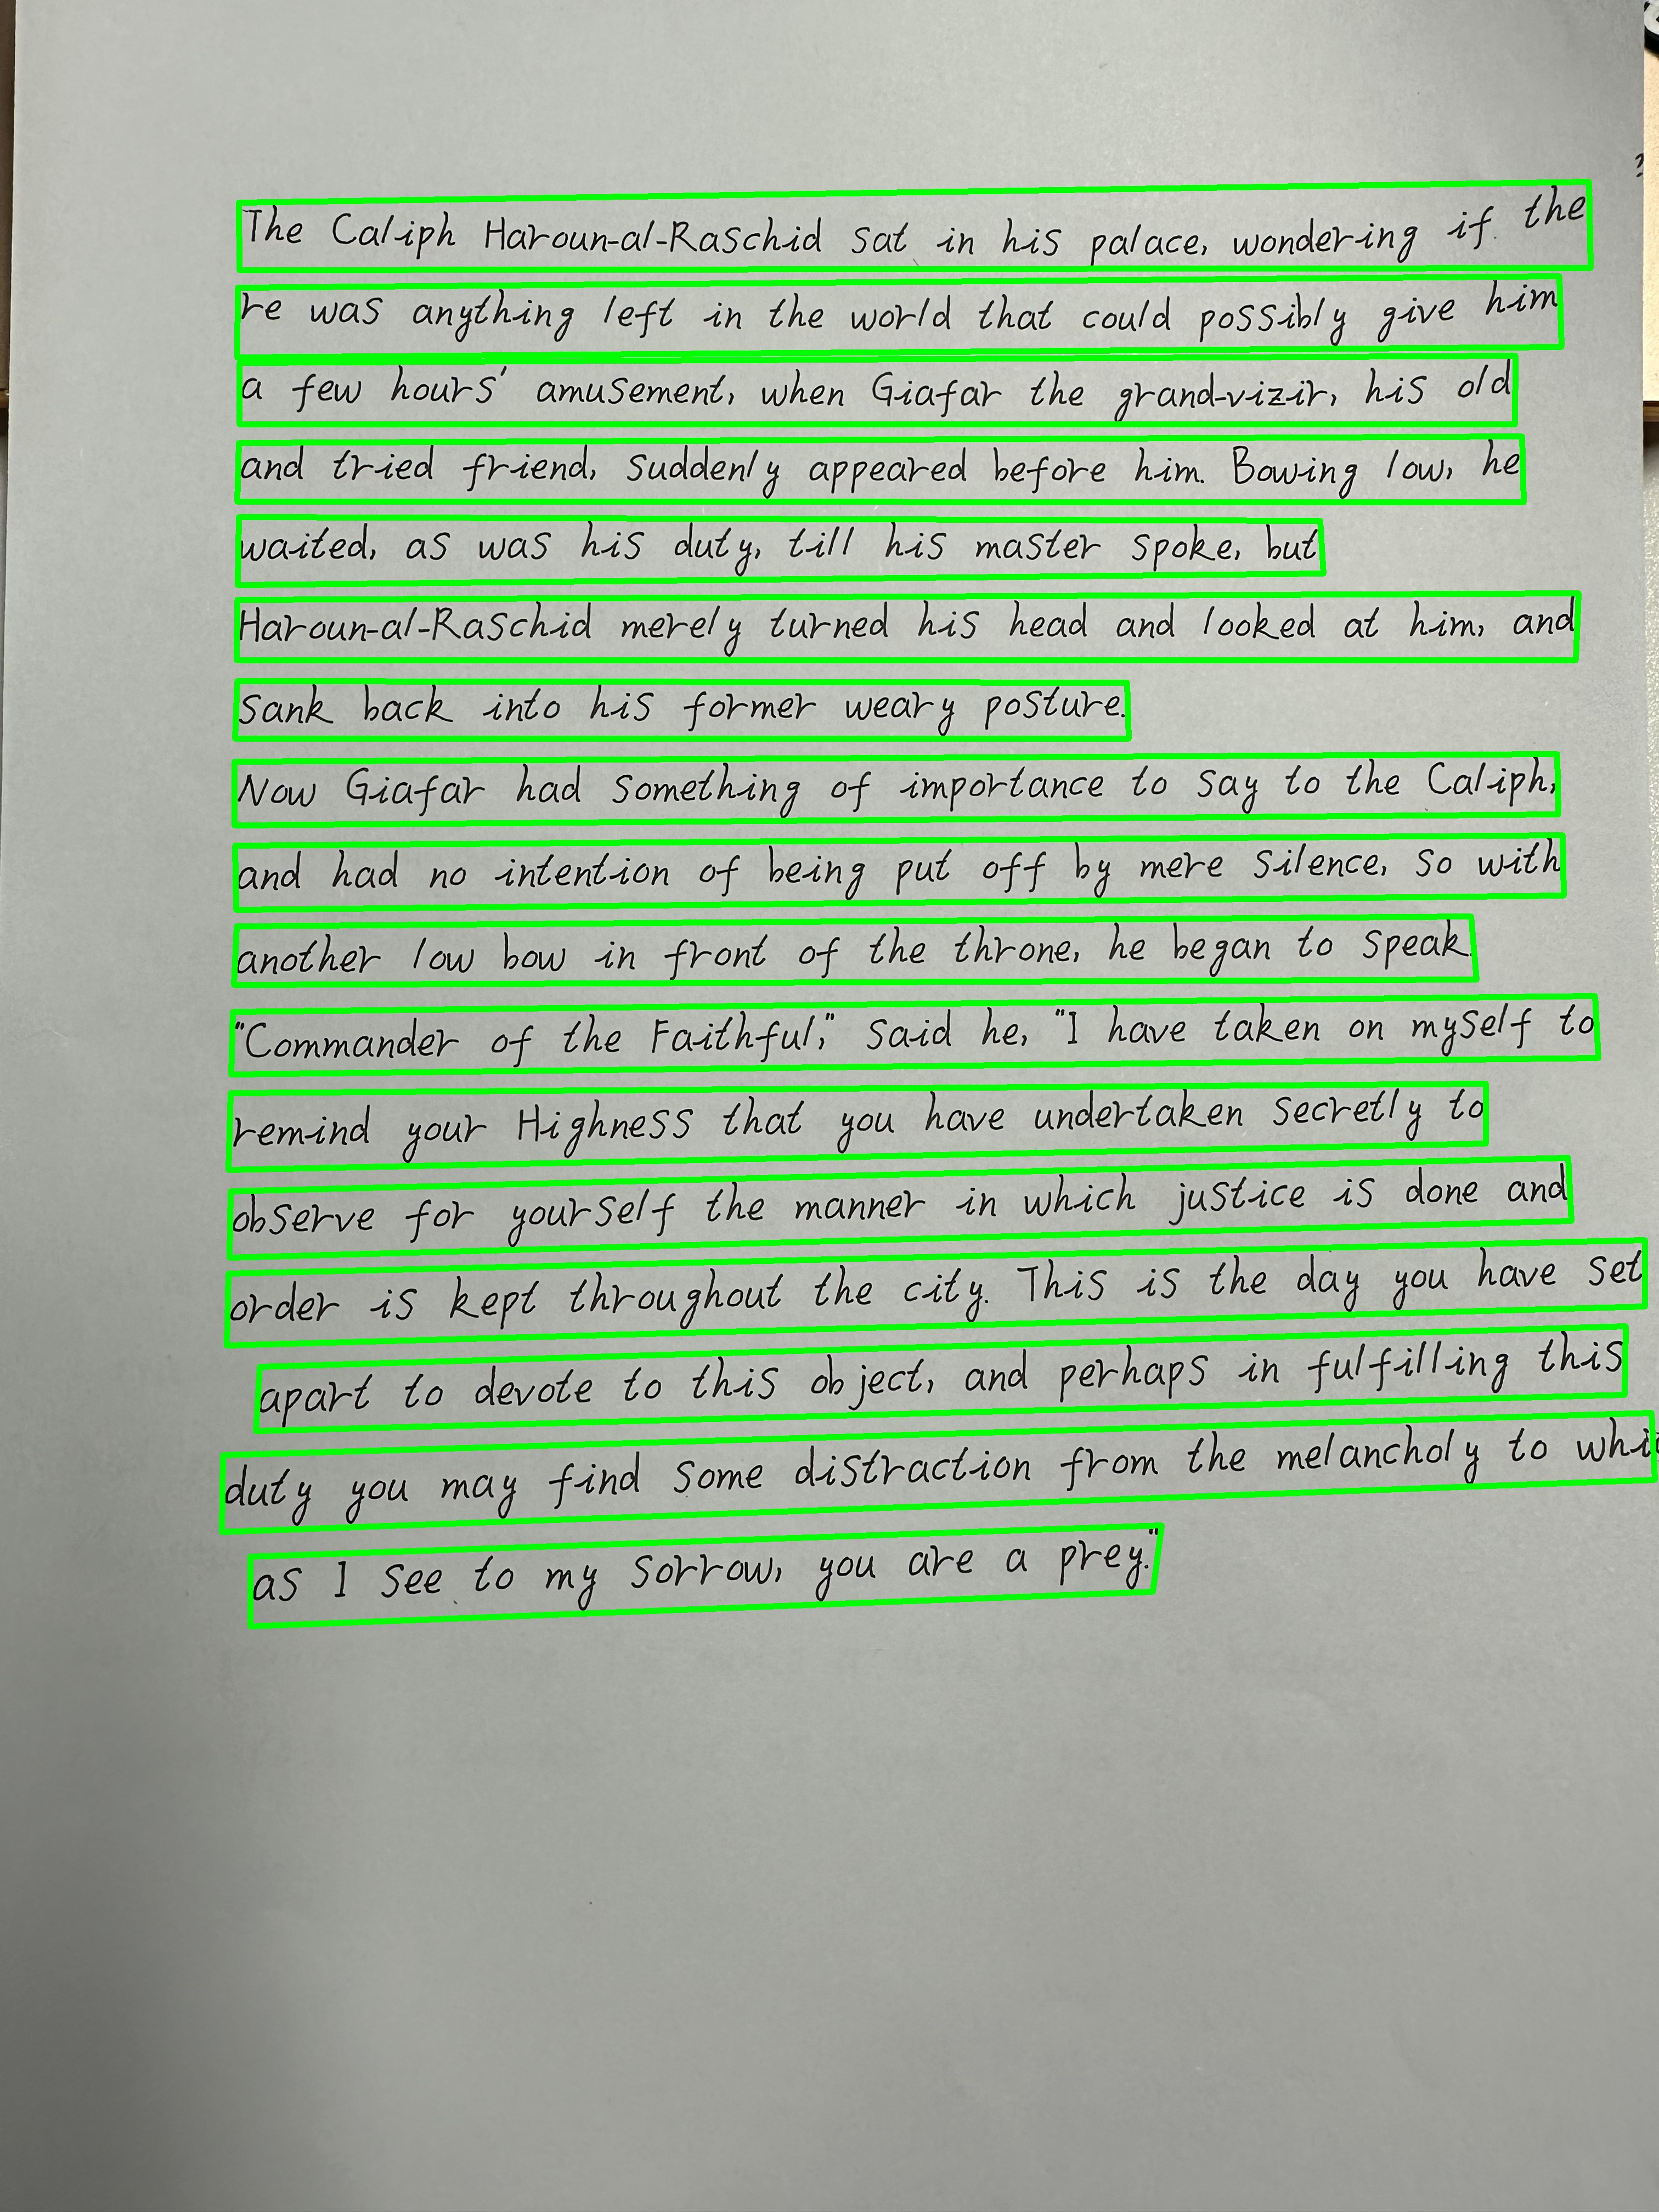 The Caliph Haroun-al-Raschid sat in his palace, wondering if the
re was anything left in the world that could possibly give him
a few hours' amusement, when Giafar the grand-vizir, his old
and tried friend, suddenly appeared before him. Bowing low, he
waited, as was his duty, till his master spoke, but
Haroun-al-Raschid merely turned his head and looked at him, and
sank back into his former weary posture.
Now Giafar had something of importance to say to the Caliph,
and had no intention of being put off by mere silence, so with
another low bow in front of the throne, he began to speak.
"Commander of the Faithful," said he, "I have taken on myself to
remind your Highness that you have undertaken secretly to
observe for yourself the manner in which justice is done and
order is kept throughout the city. This is the day you have set
apart to devote to this object, and perhaps in fulfilling this
duty you may find some distraction from the melancholy to
as I see to my sorrow, you are a prey."